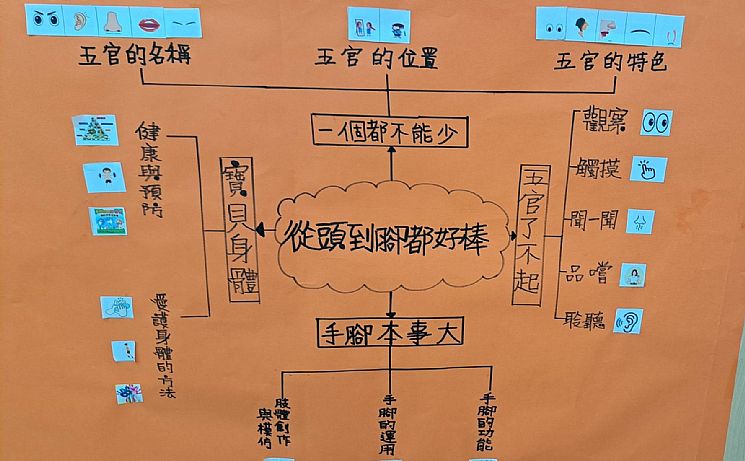 五官的名稱
五官的位置
五官的特色
一個都不能少
從頭到腳都好棒
寶貝身體
健康與預防
愛護身體的方法
五官了不起
觀察
觸摸
聞一聞
品嚐
聆聽
手腳本事大
肢體創作
與模仿
手腳的運用
手腳的功能